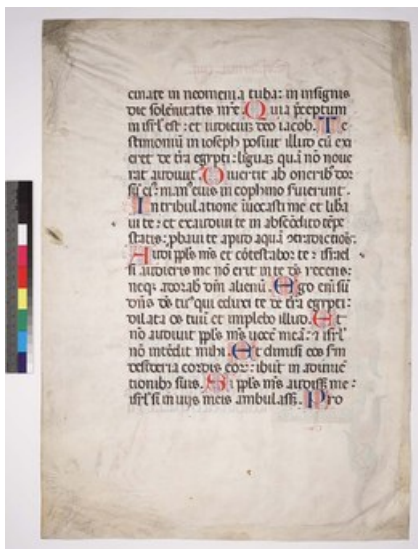 cinate in neomenia tuba: in insignis
die solēnitatis nr̄e. Quia p̄ceptum
in isrl̄ est: et iudiciū deo iacob. Te
stimoniū in ioseph posuit illud cū exi
eret de t̄ra egypti: liguas quā nō noue
rat audiuit. Diuertit ab onerib᷒ dor
sū ei᷒: man᷒ eius in cophino suierunt.
In tribulatione īuocasti me et liba
ui te: et exaudiui te in abscōdito tēpe
statis: ꝓbaui te apud aquā ꝯtradictiōis.
Audi ppl̄s m̄s et cōtestabor te: israel
si audieris me non erit in te d̄s recens:
neq; adorab᷒ dm̄ alienū. Ego em̄ sū
dn̄s d̄s tu᷒ qui eduxi te de t̄ra egypti:
dilata os tuū et implebo illud. Et
nō audiuit ppl̄s m̄s uocē meā: ⁊ isrl̄
nō intēdit mihi. Et dimisi eos sm̄
desideria cordis eoꝝ: ibūt in adinuē
tionib᷒ suis. Si ppl̄s m̄s audiss᷒ me:
isrl̄ si in uijs meis ambulass᷒. Pro